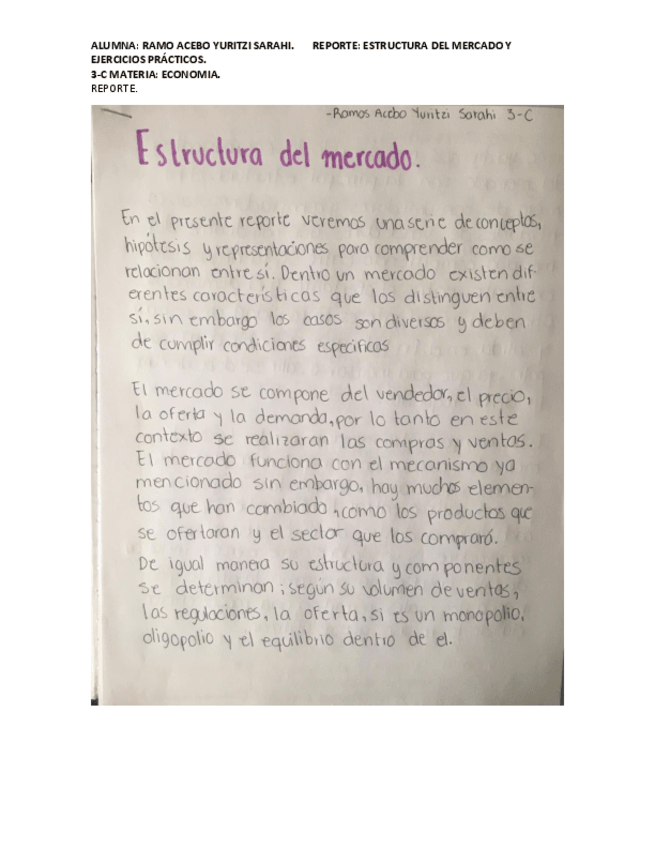 ALUMNA: RAMO ACEBO YURITZI SARAHI. REPORTE: ESTRUCTURA DEL MERCADO Y
EJERCICIOS PRÁCTICOS.
3-C MATERIA: ECONOMIA.
REPORTE.
-Ramos Acebo Yuritzi Sarahi 3-C
Estructura del mercado.
En el presente reporte veremos una serie de conceptos,
hipótesis y representaciones para comprender como se
relacionan entre sí. Dentro un mercado existen dif-
erentes características que los distinguen entre
sí, sin embargo los casos son diversos y deben
de cumplir condiciones especificas
El mercado se compone del vendedor, el precio,
la oferta y la demanda, por lo tanto en este
contexto se realizaran las compras y ventas.
El mercado funciona con el mecanismo ya
mencionado sin embargo, hay muchos elemen-
tos que han cambiado, como los productos que
se ofertaran y el sector que los comprará.
De igual manera su estructura y componentes
se determinan; según su volumen de ventas,
las regulaciones, la oferta, si es un monopolio,
oligopolio y el equilibrio dentro de el.